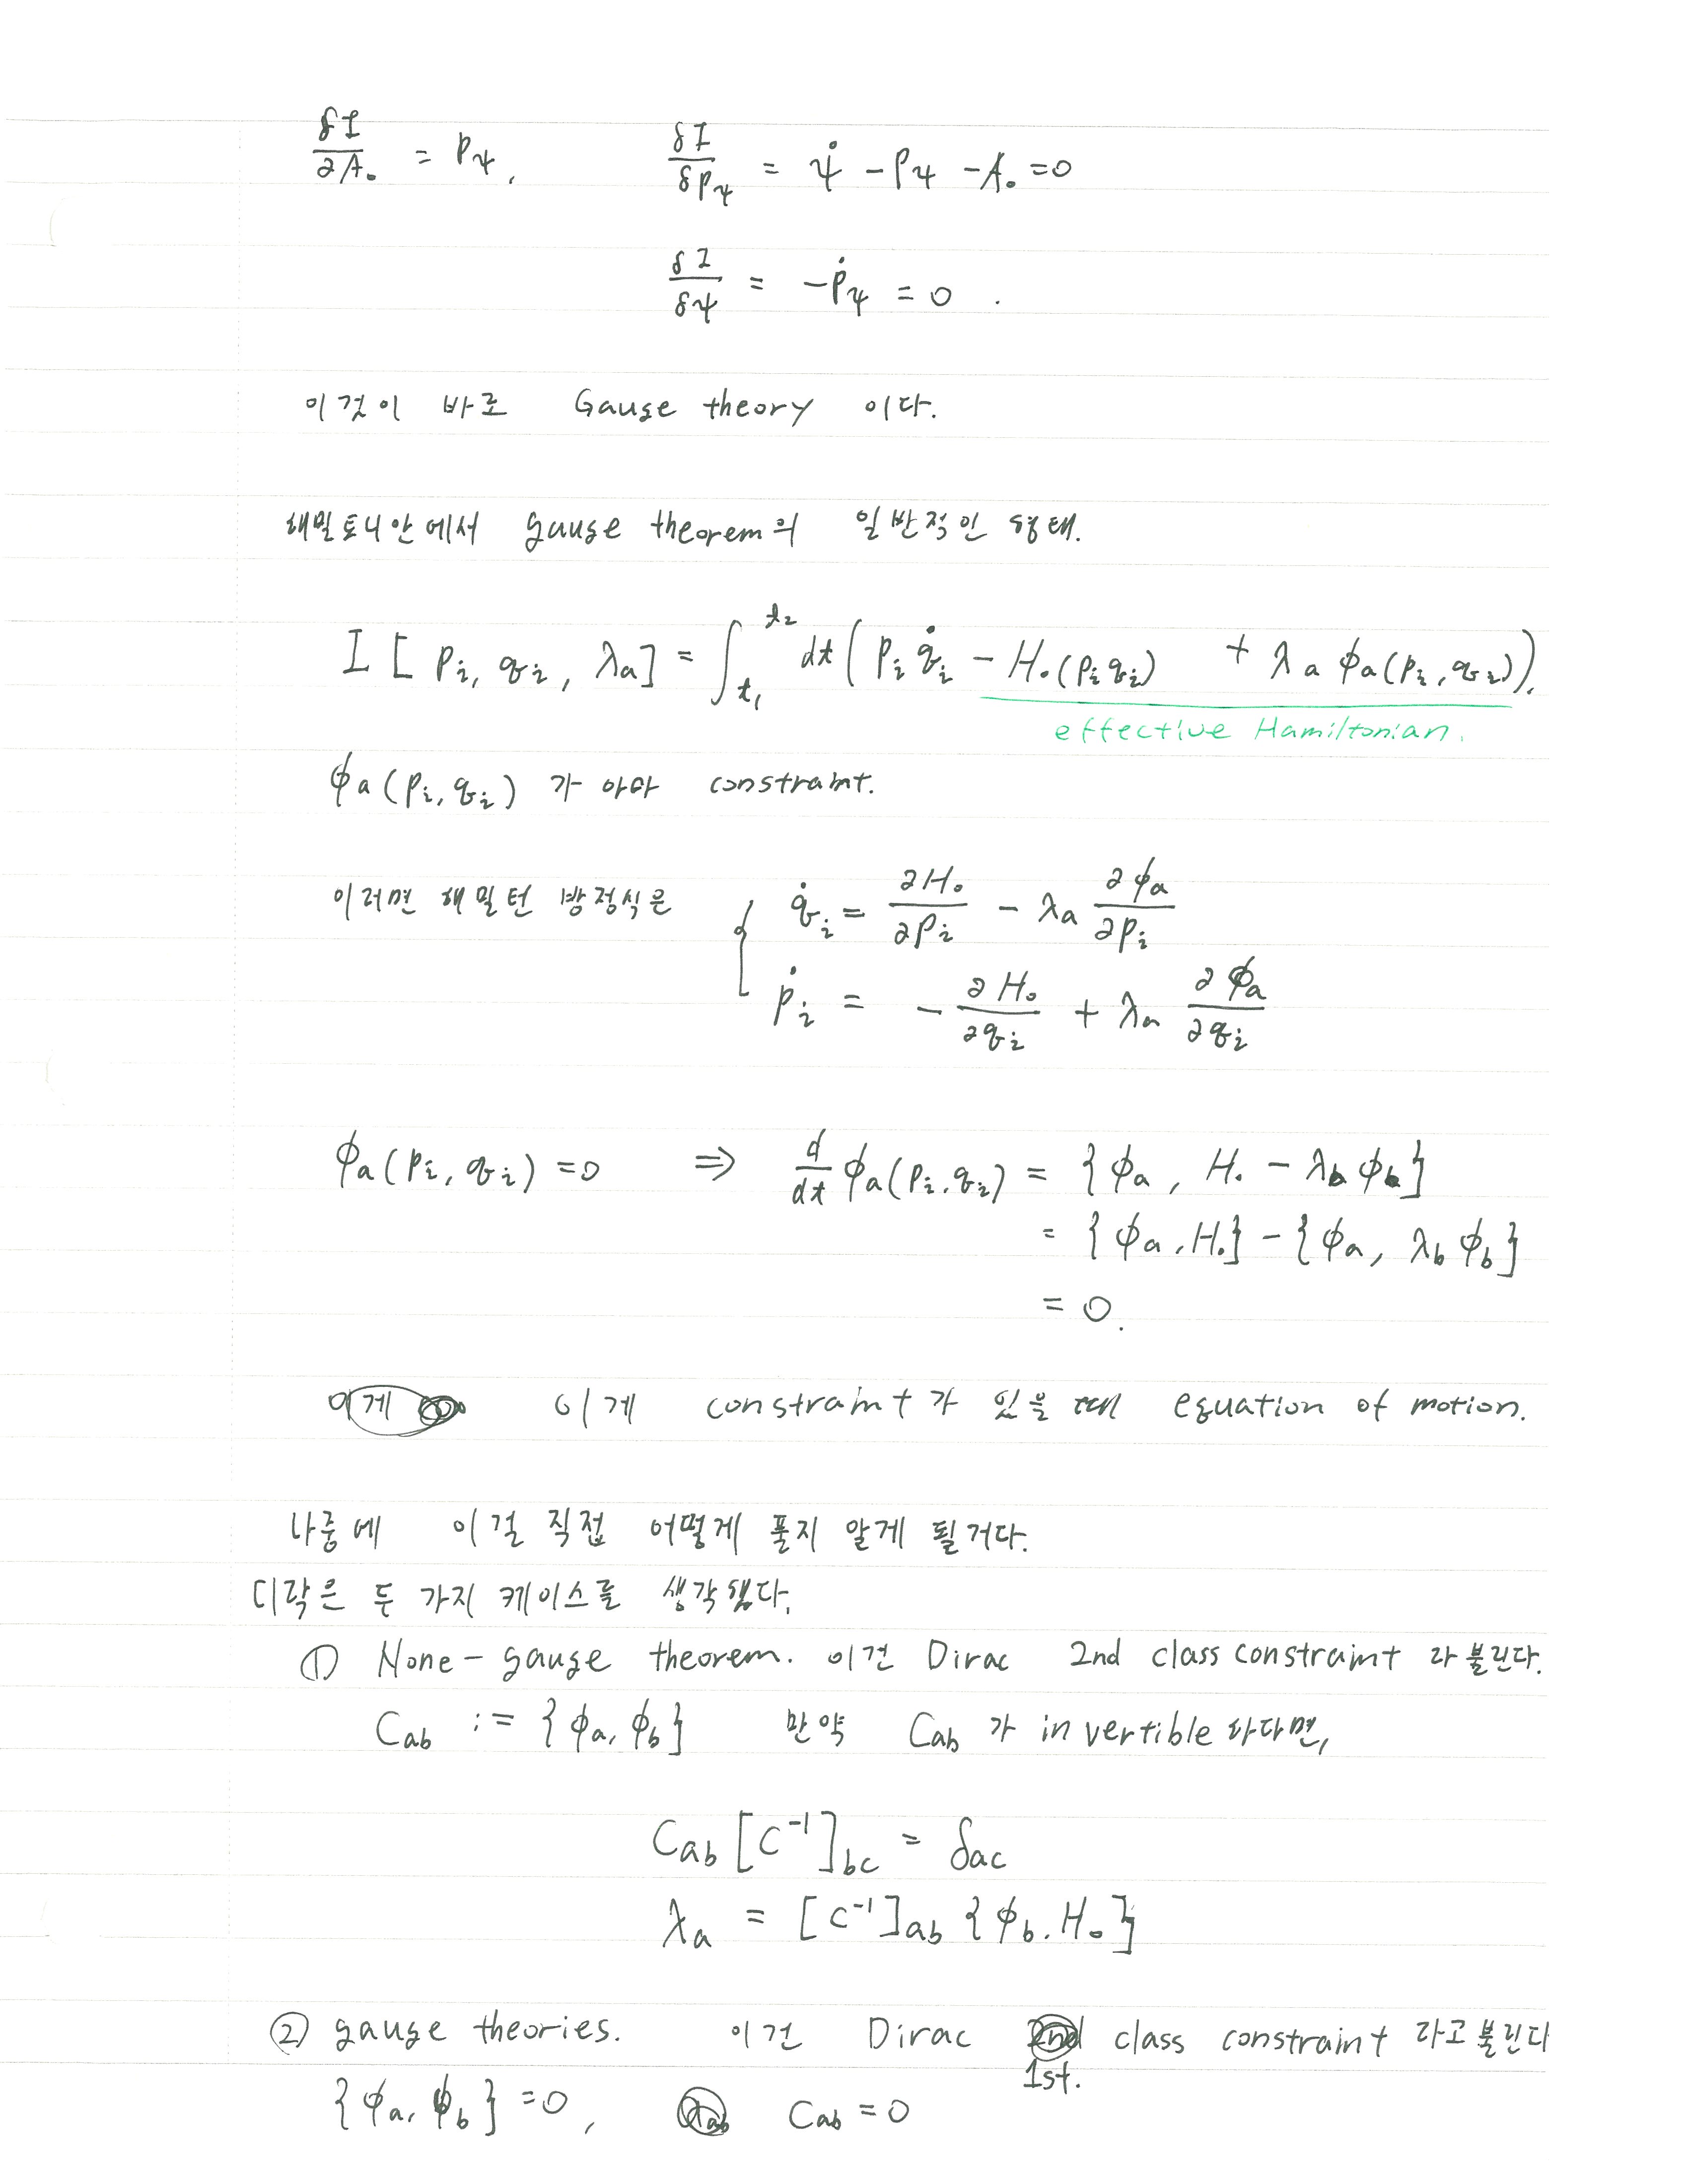 δI/∂A₀ = Pψ, δI/δPψ = ψ̇ - Pψ - A₀ = 0
δI/δψ = -Ṗψ = 0 .
이것이 바로 Gauge theory 이다.
해밀토니안에서 gauge theorem의 일반적인 형태.
I [ Pi, qi, λa ] = ∫_{t₁}^{t₂} dt ( Pi q̇i - H₀(Pi qi) + λa ϕa(Pi, qi) ).
effective Hamiltonian.
ϕa(Pi, qi) 가 아마 constraint.
이러면 해밀턴 방정식은 { q̇i = ∂H₀/∂Pi - λa ∂ϕa/∂Pi
Ṗi = - ∂H₀/∂qi + λa ∂ϕa/∂qi
ϕa(Pi, qi) = 0 ⇒ d/dt ϕa(Pi, qi) = { ϕa, H₀ - λb ϕb }
= { ϕa, H₀ } - { ϕa, λb ϕb }
= 0.
이게 이게 constraint가 있을 때 equation of motion.
나중에 이걸 직접 어떻게 풀지 알게 될거다.
디락은 두 가지 케이스를 생각했다.
① None - gauge theorem. 이건 Dirac 2nd class constraint 라 불린다.
Cab := { ϕa, ϕb } 만약 Cab 가 invertible 하다면,
Cab [C⁻¹]bc = δac
λa = [C⁻¹]ab { ϕb, H₀ }
② gauge theories. 이건 Dirac 2nd class constraint 라고 불린다
1st.
{ ϕa, ϕb } = 0, Cab = 0